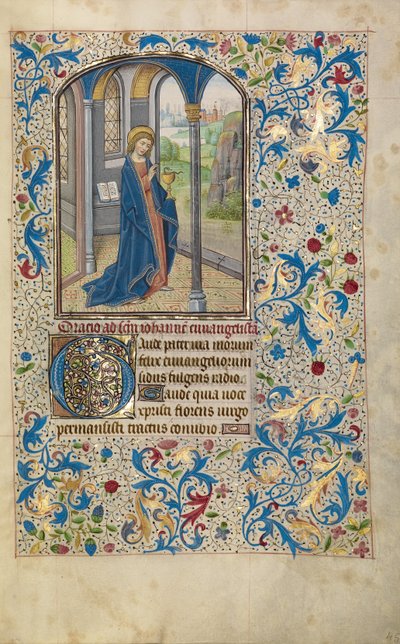 Oracio ad sctm iohannē euangelistā
Gaude pater via morum
felix euangeliorum
sidus fulgens radio.
Gaude quia uoce
xpristi florens uirgo
permansisti tractus conubio.
45